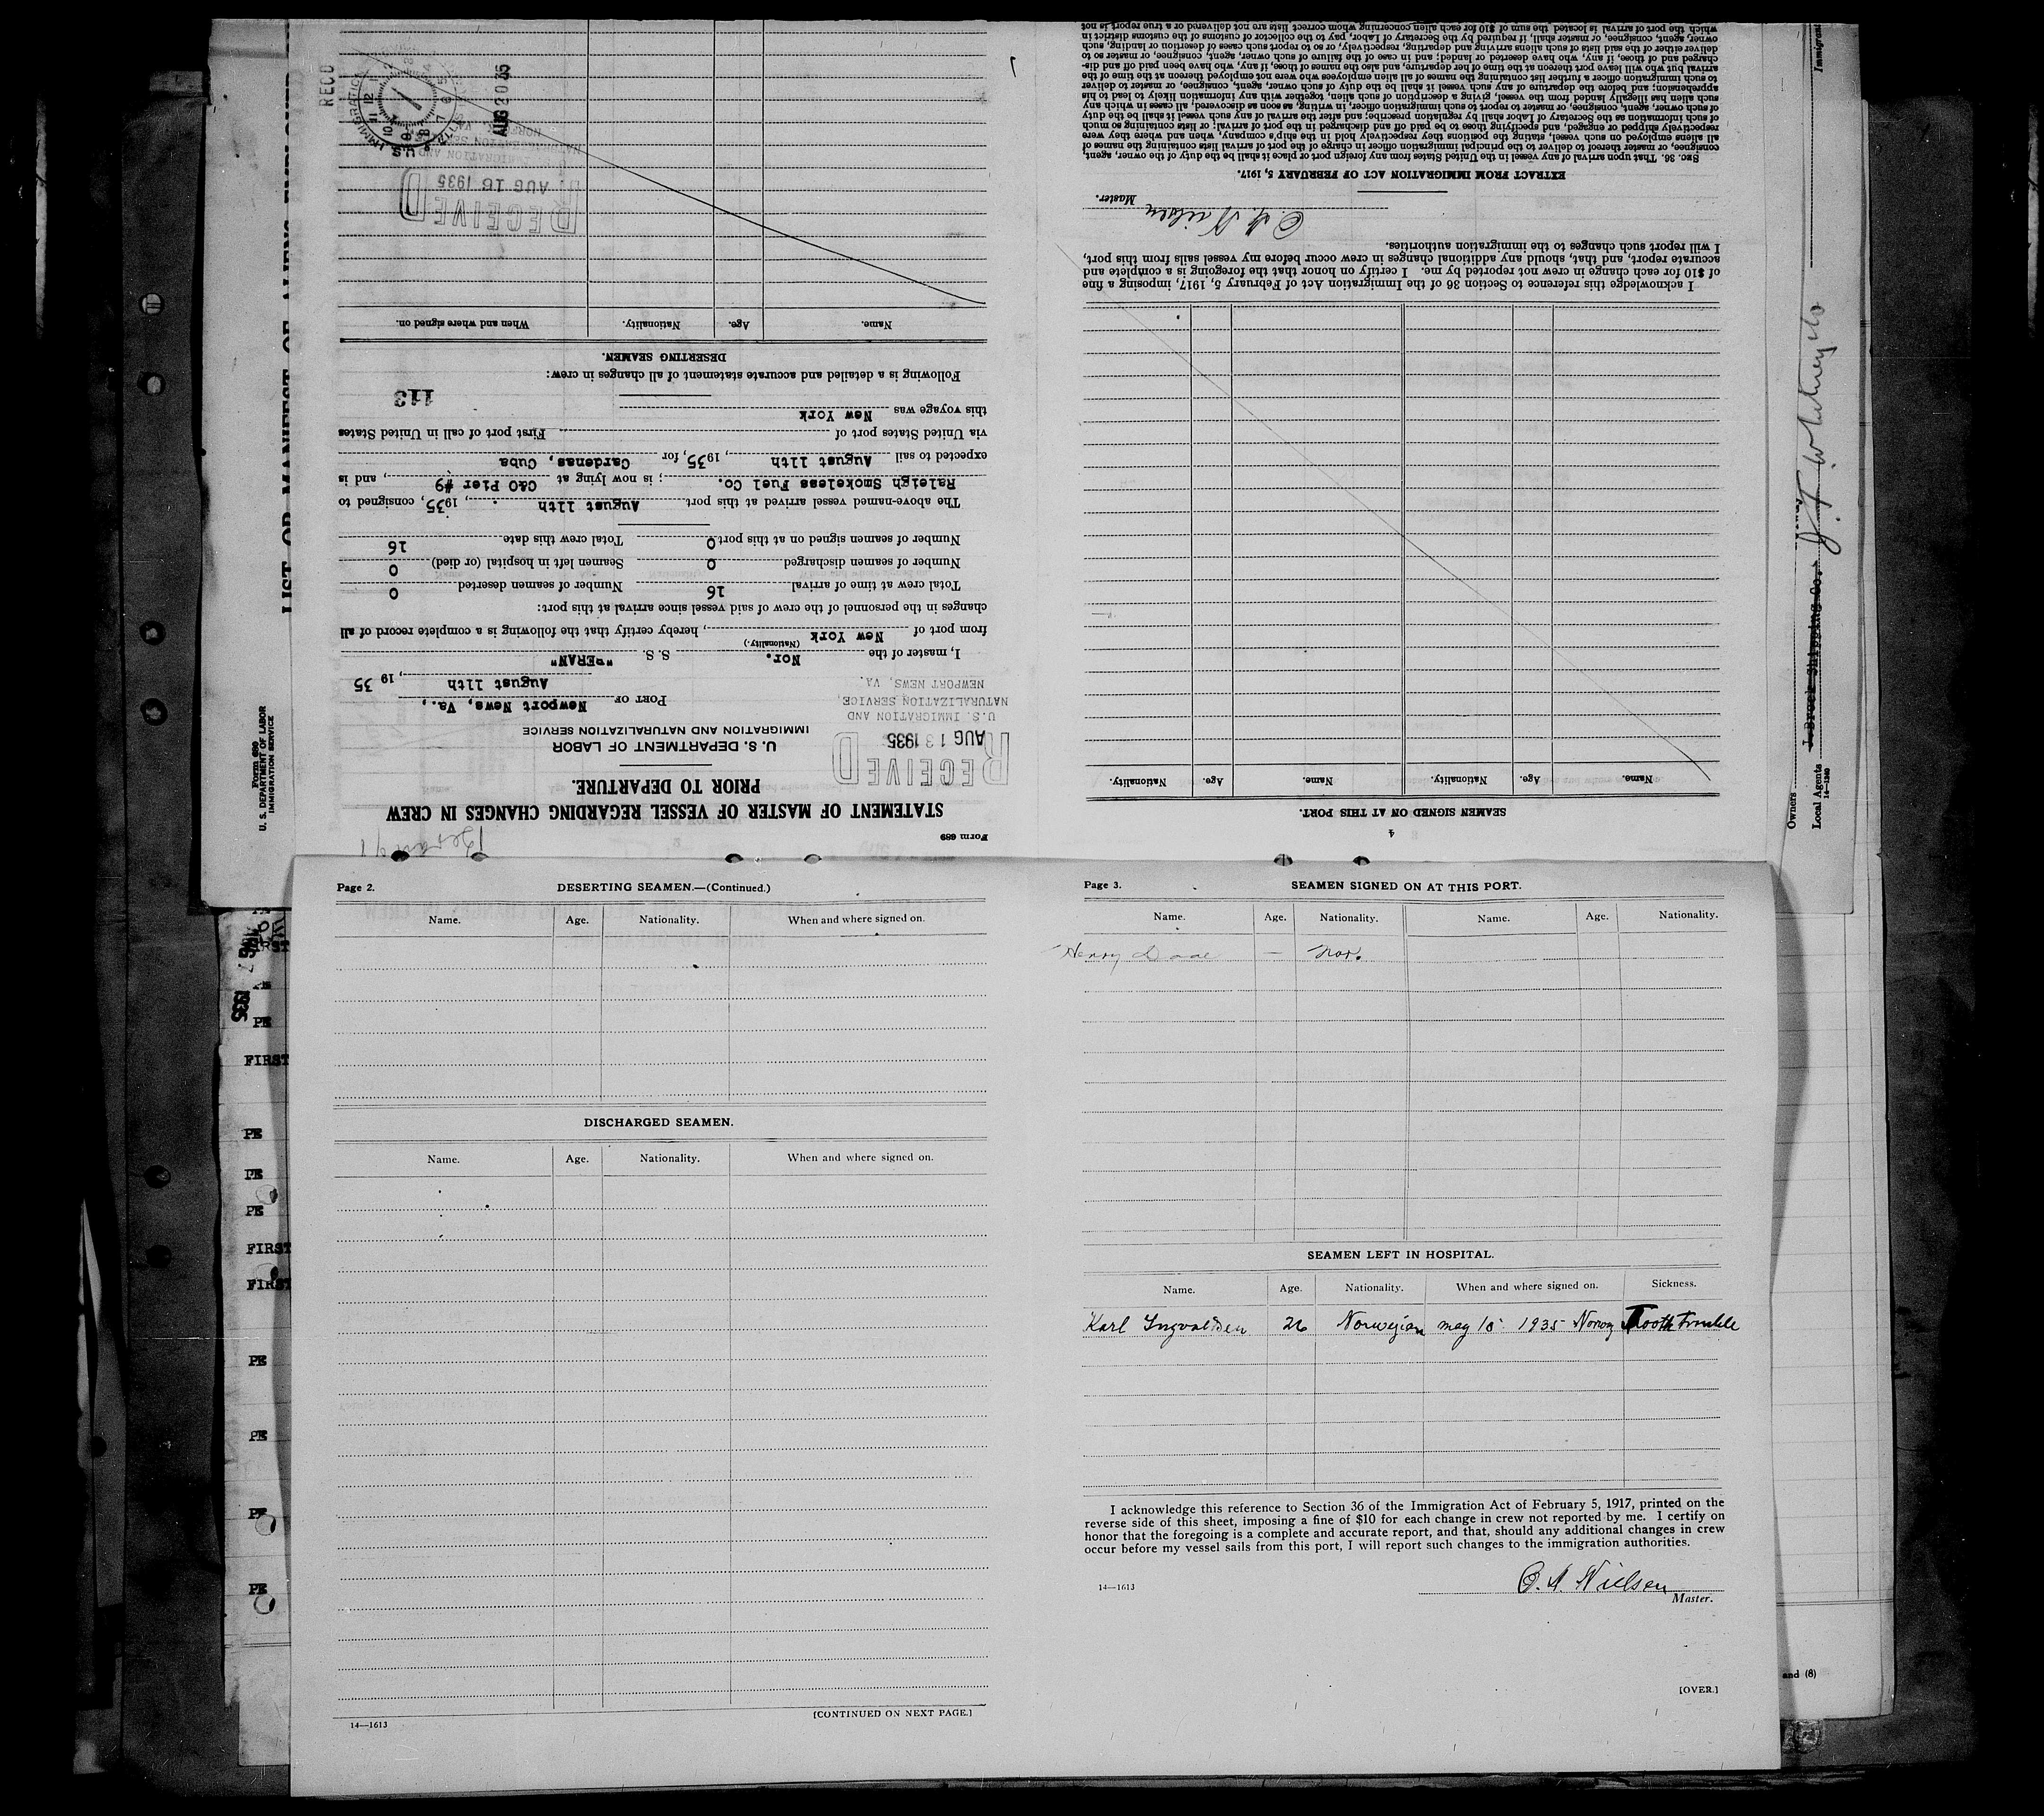 Form 689
STATEMENT OF MASTER OF VESSEL REGARDING CHANGES IN CREW
PRIOR TO DEPARTURE.
U. S. DEPARTMENT OF LABOR
IMMIGRATION AND NATURALIZATION SERVICE
RECEIVED
AUG 13 1935
U.S. IMMIGRATION AND
NATURALIZATION SERVICE,
NEWPORT NEWS, VA.
PORT OF Newport News, Va.,
August 11th, 1935
I, master of the Nor. S. S. "PERAN"
(Nationality.)
from port of New York, hereby certify that the following is a complete record of all
changes in the personnel of the crew of said vessel since arrival at this port:
Total crew at time of arrival 16 Number of seamen deserted 0
Number of seamen discharged 0 Seamen left in hospital (or died) 0
Number of seamen signed on at this port 0 Total crew this date 16
The above-named vessel arrived at this port August 11th, 1935, consigned to
Raleigh Smokeless Fuel Co. ; is now lying at C&O Pier #9, and is
expected to sail August 11th, 1935, for Cardenas, Cuba
via United States port of . First port of call in United States
this voyage was New York
113
Following is a detailed and accurate statement of all changes in crew:
DESERTING SEAMEN.
Name. Age. Nationality. When and where signed on.
RECEIVED
AUG 16 1935
AUG 20 35
RECD
U.S. IMMIGRATION
4
SEAMEN SIGNED ON AT THIS PORT.
Name. Age. Nationality. Name. Age. Nationality.
I acknowledge this reference to Section 36 of the Immigration Act of February 5, 1917, imposing a fine
of $10 for each change in crew not reported by me. I certify on honor that the foregoing is a complete and
accurate report, and that, should any additional changes in crew occur before my vessel sails from this port,
I will report such changes to the immigration authorities.
O. A. Nielsen
Master.
EXTRACT FROM IMMIGRATION ACT OF FEBRUARY 5, 1917.
SEC. 36. That upon arrival of any vessel in the United States from any foreign port or place it shall be the duty of the owner, agent,
consignee, or master thereof to deliver to the principal immigration officer in charge of the port of arrival lists containing the names of
all aliens employed on such vessel, stating the positions they respectively hold in the ship's company, when and where they were
respectively shipped or engaged, and specifying those to be paid off and discharged in the port of arrival; or lists containing so much
of such information as the Secretary of Labor shall by regulation prescribe; and after the arrival of any such vessel it shall be the duty
of such owner, agent, consignee, or master to report to such immigration officer, in writing, as soon as discovered, all cases in which any
such alien has illegally landed from the vessel, giving a description of such alien, together with any information likely to lead to his
apprehension; and before the departure of any such vessel it shall be the duty of such owner, agent, consignee, or master to deliver
to such immigration officer a further list containing the names of all alien employees who were not employed thereon at the time of the
arrival but who will leave port thereon at the time of her departure, and also the names of those, if any, who have been paid off and dis-
charged and of those, if any, who have deserted or landed; and in case of the failure of such owner, agent, consignee, or master so to
deliver either of the said lists of such aliens arriving and departing, respectively, or so to report such cases of desertion or landing, such
owner, agent, consignee, or master shall, if required by the Secretary of Labor, pay to the collector of customs of the customs district in
which the port of arrival is located the sum of $10 for each alien concerning whom correct lists are not delivered or a true report is not
Form 680
U. S. DEPARTMENT OF LABOR
IMMIGRATION SERVICE
Owners
Local Agents
14—1240
Page 2. DESERTING SEAMEN.—(Continued.)
Name. Age. Nationality. When and where signed on.
DISCHARGED SEAMEN.
Name. Age. Nationality. When and where signed on.
14—1613 [CONTINUED ON NEXT PAGE.]
Page 3. SEAMEN SIGNED ON AT THIS PORT.
Name. Age. Nationality. Name. Age. Nationality.
Henry — Nor.
SEAMEN LEFT IN HOSPITAL.
Name. Age. Nationality. When and where signed on. Sickness.
Karl Ingvaldsen 26 Norwegian may 15 1935 Norway Tooth Trouble
I acknowledge this reference to Section 36 of the Immigration Act of February 5, 1917, printed on the
reverse side of this sheet, imposing a fine of $10 for each change in crew not reported by me. I certify on
honor that the foregoing is a complete and accurate report, and that, should any additional changes in crew
occur before my vessel sails from this port, I will report such changes to the immigration authorities.
O. A. Nielsen
Master.
14—1613
[OVER.]
and (8)
1935
PE
FIRST
PE
PE
PE
FIRST
FIRST
PE
PE
PE
PE